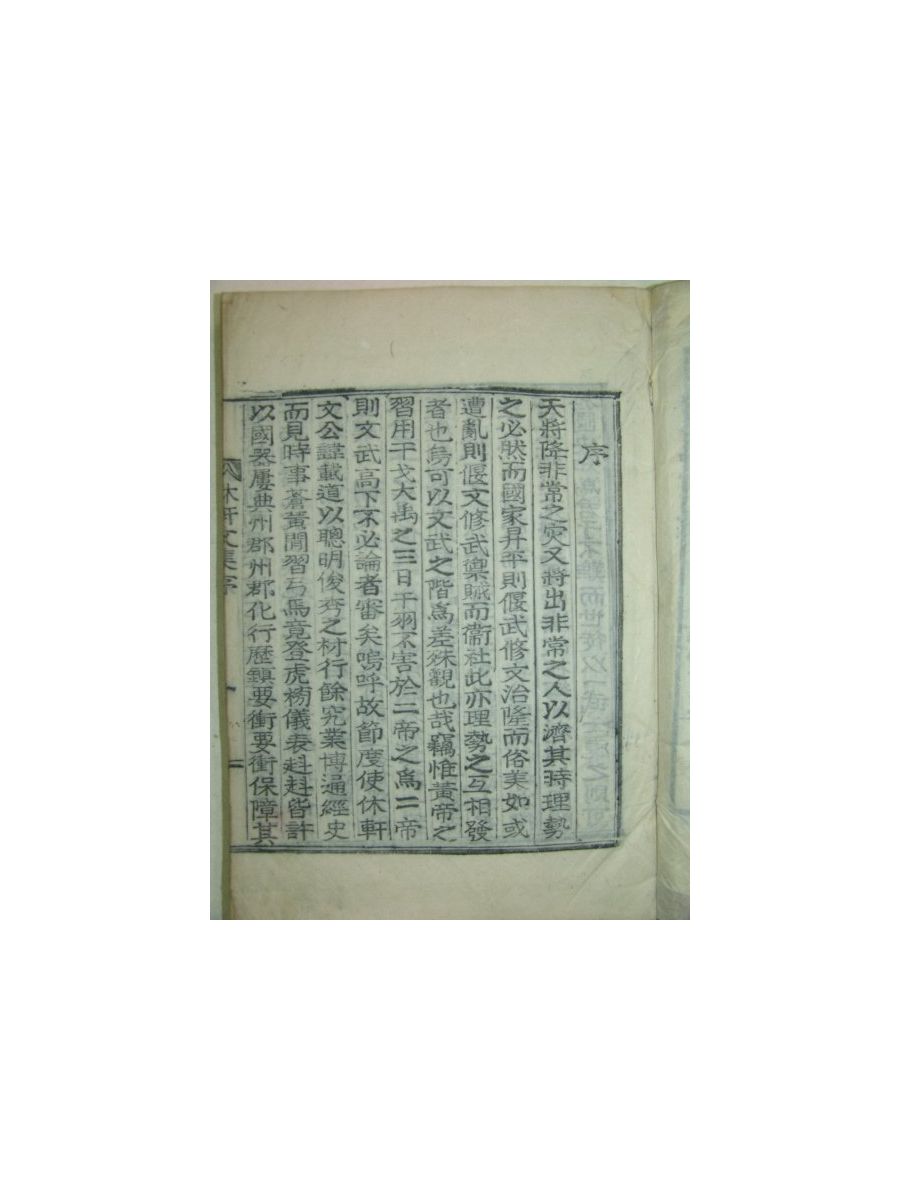 序
天將降非常之灾又將出非常之人以濟其時理勢
之必然而國家昇平則偃武修文治隆而俗美如或
遭亂則偃文修武禦賊而衛社此亦理勢之互相發
者也烏可以文武之階爲差殊觀也哉竊惟黃帝之
習用干戈大禹之三日干羽不害於二帝之爲二帝
則文武高下不必論者審矣嗚呼故節度使休軒
文公諱載道以聰明俊秀之材行餘究業博通經史
而見時事蒼黃閒習弓馬竟登虎榜儀表赳赳皆許
以國器屢典州郡州郡化行歷鎮要衝要衝保障其
休軒文集序
一